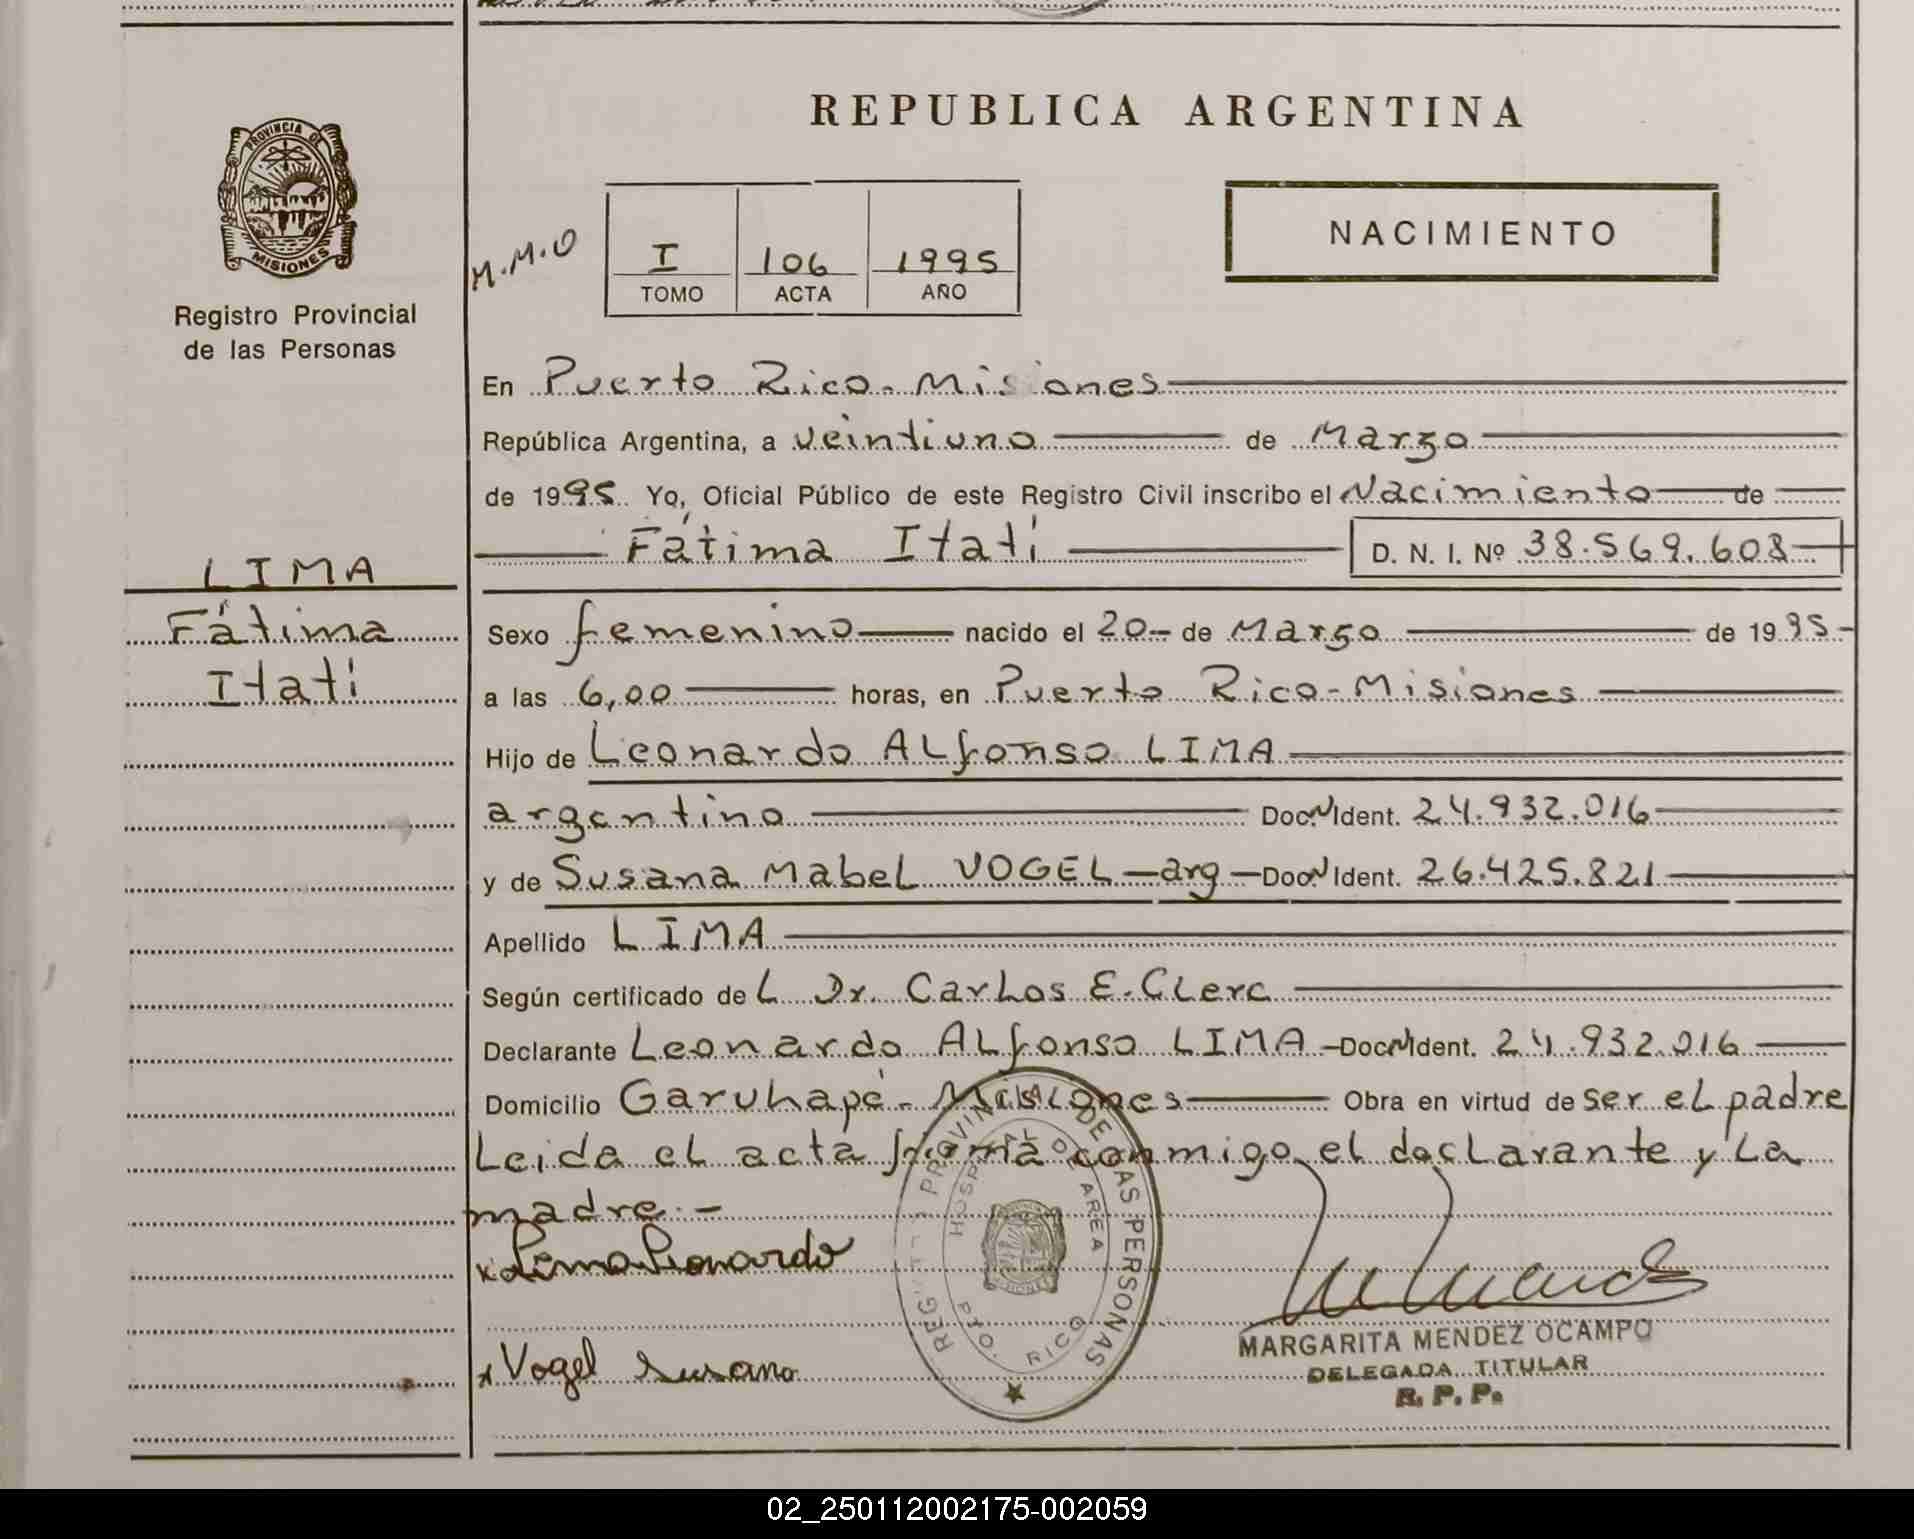 REPUBLICA ARGENTINA
PROVINCIA DE
MISIONES
Registro Provincial
de las Personas
M.M.O
I 106 1995
TOMO ACTA AÑO
NACIMIENTO
En Puerto Rico - Misiones
República Argentina, a veintiuno de Marzo
de 1995. Yo, Oficial Público de este Registro Civil inscribo el Nacimiento de
Fátima Itatí D. N. I. Nº 38.569.608
LIMA
Fátima
Itatí
Sexo femenino nacido el 20 - de Marzo de 1995 -
a las 6,00 horas, en Puerto Rico - Misiones
Hijo de Leonardo ALfonso LIMA
argentino Doc. N Ident. 24.932.016
y de Susana Mabel VOGEL - arg - Doc. N Ident. 26.425.821
Apellido LIMA
Según certificado del Dr. Carlos E. Clerc
Declarante Leonardo ALfonso LIMA - Doc. N Ident. 24.932.016
Domicilio Garuhapé - Misiones Obra en virtud de ser el padre
Leida el acta firma conmigo el declarante y la
madre. -
x Lima Leonardo
x Vogel Susana
PROVINCIAL DE LAS PERSONAS
HOSPITAL DE AREA
PTO. RICO
MARGARITA MENDEZ OCAMPO
DELEGADA TITULAR
R. P. P.
02_250112002175-002059